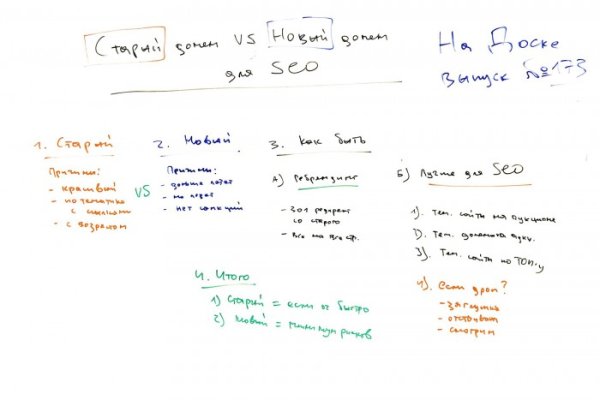 Старый домен VS Новый домен
для SEO
На Доске
выпуск №173
1. Старый
Причины:
- красивый
- по тематике
с ссылками
- с возрастом
VS
2. Новый
Причины:
- дольше
- не
- нет санкций
3. Как быть
А) Ребрендинг
- 301 редирект
со старого
- Все на все стр.
Б) Лучше для SEO
1). Тем. сайты на аукционе
2). Тем. домены аукц.
3). Тем. сайты по ТОП-у
4). если дроп?
- загнулся
-
- смотрим
4. Итого
1) Старый = если оч быстро
2) Новый = минимум рисков